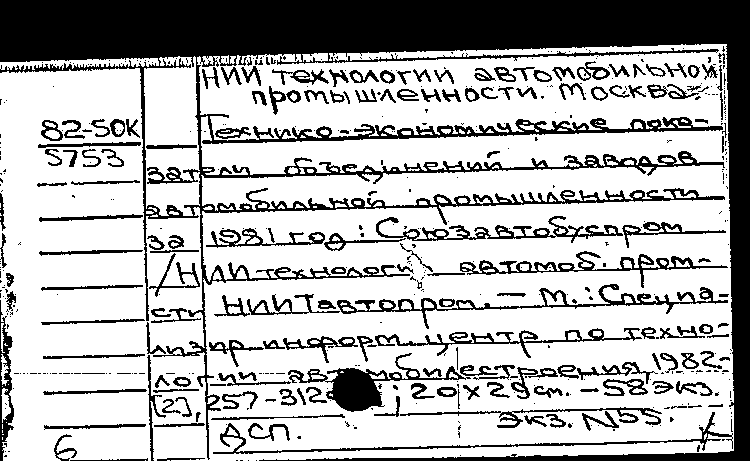 НИИ технологии автомобильной
промышленности. Москва
82-50К Технико-экономические пока-
5753
затели объединений и заводов
автомобильной промышленности
за 1981 год : Союзавтобуспром
/НИИ технологии автомоб. пром-
сти НИИТавтопром. – М. : Специа-
лизир. информ. центр по техно-
логии автомобилестроения, 1982.-
[2], 257-312 ; 20 х 29 см. – 58 экз.
ДСП. экз. N55.
6 К